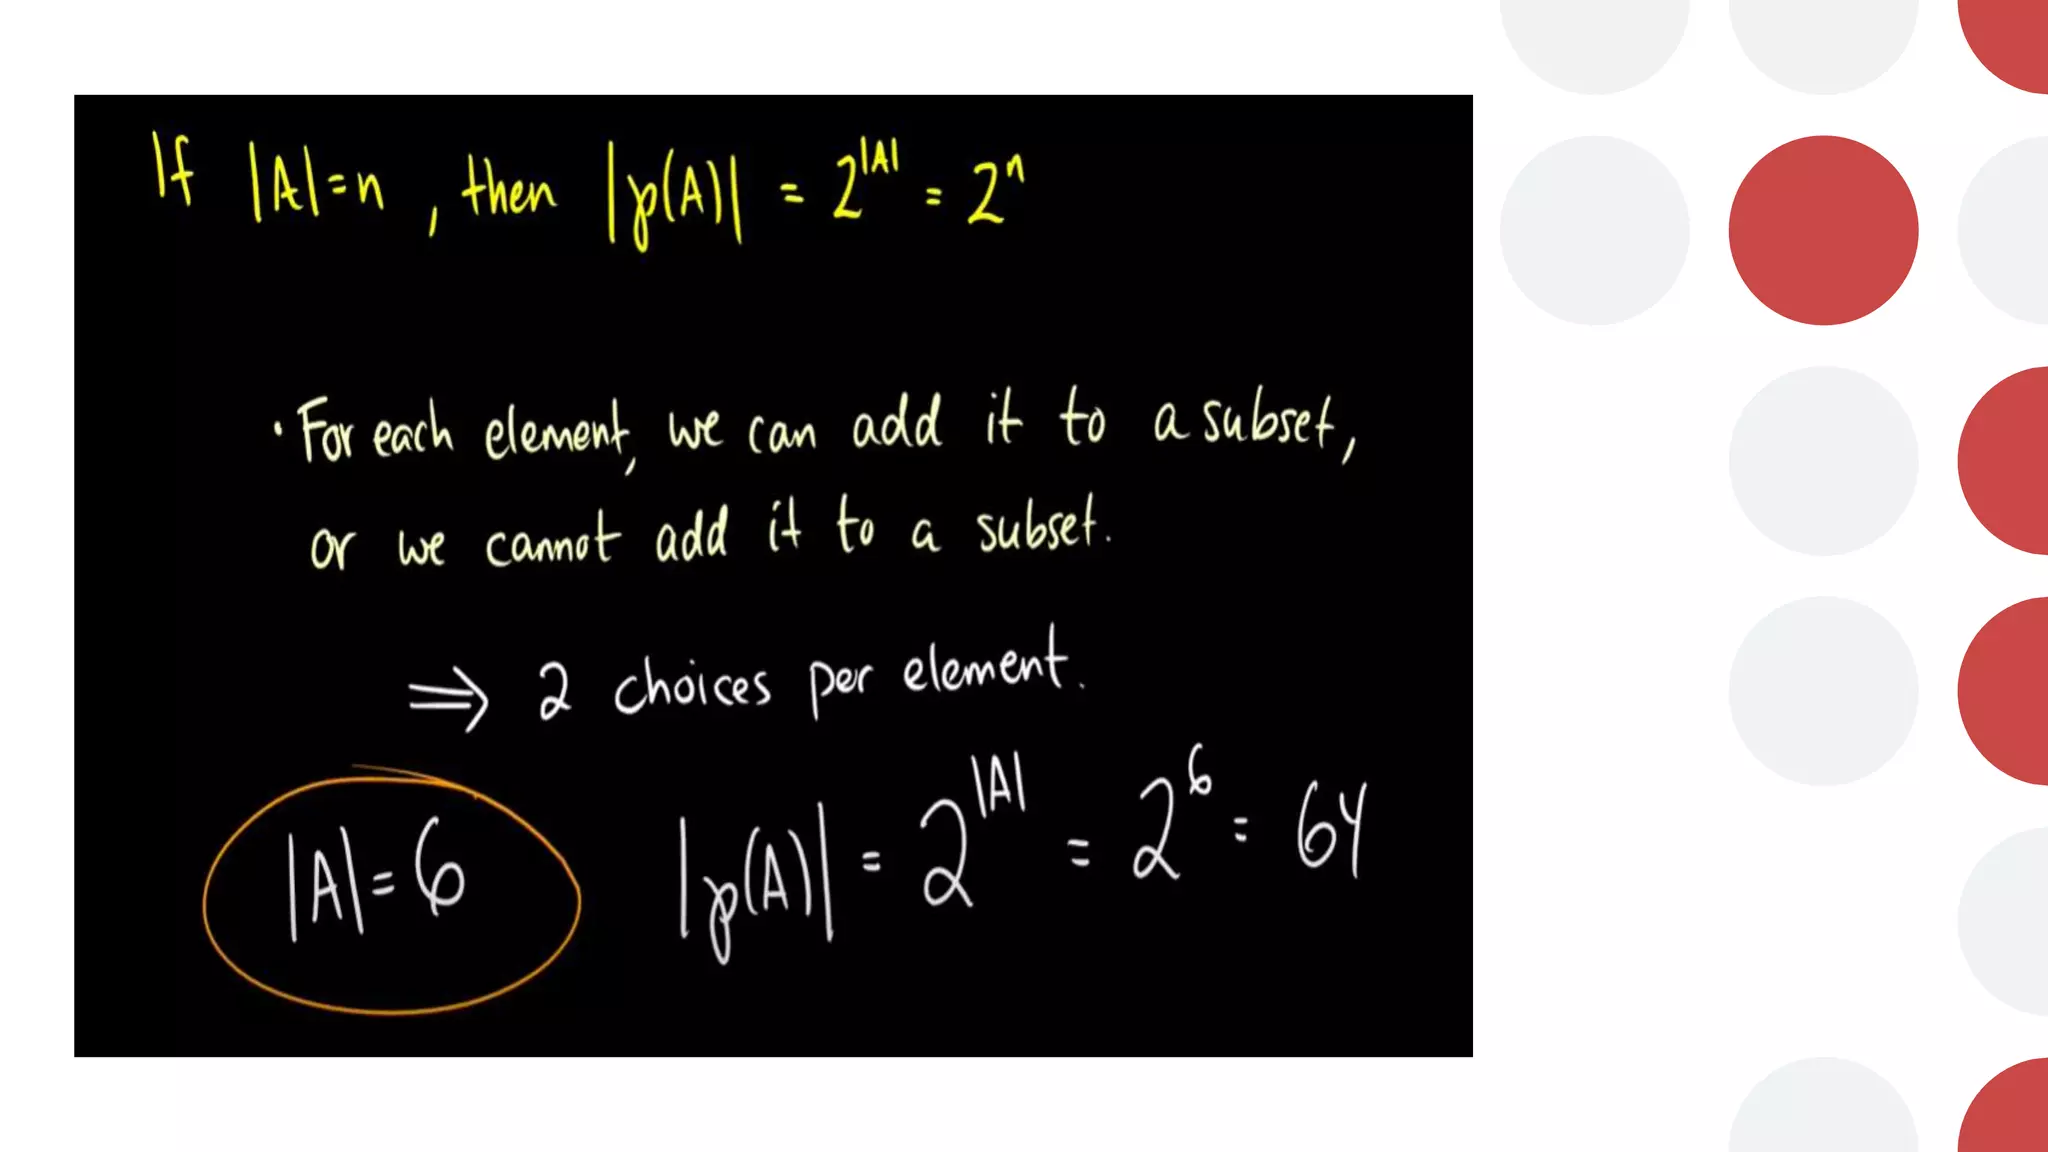 If |A|=n, then |p(A)| = 2^|A| = 2^n
• For each element, we can add it to a subset,
or we cannot add it to a subset.
⇒ 2 choices per element.
|A|=6 |p(A)| = 2^|A| = 2^6 = 64